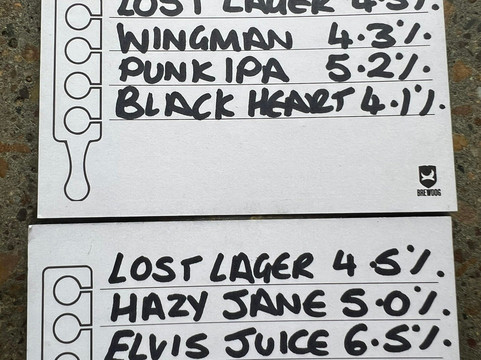 LOST LAGER 4.5%.
WINGMAN 4.3%.
PUNK IPA 5.2%.
BLACK HEART 4.1%.
BREWDOG
LOST LAGER 4.5%.
HAZY JANE 5.0%.
ELVIS JUICE 6.5%.